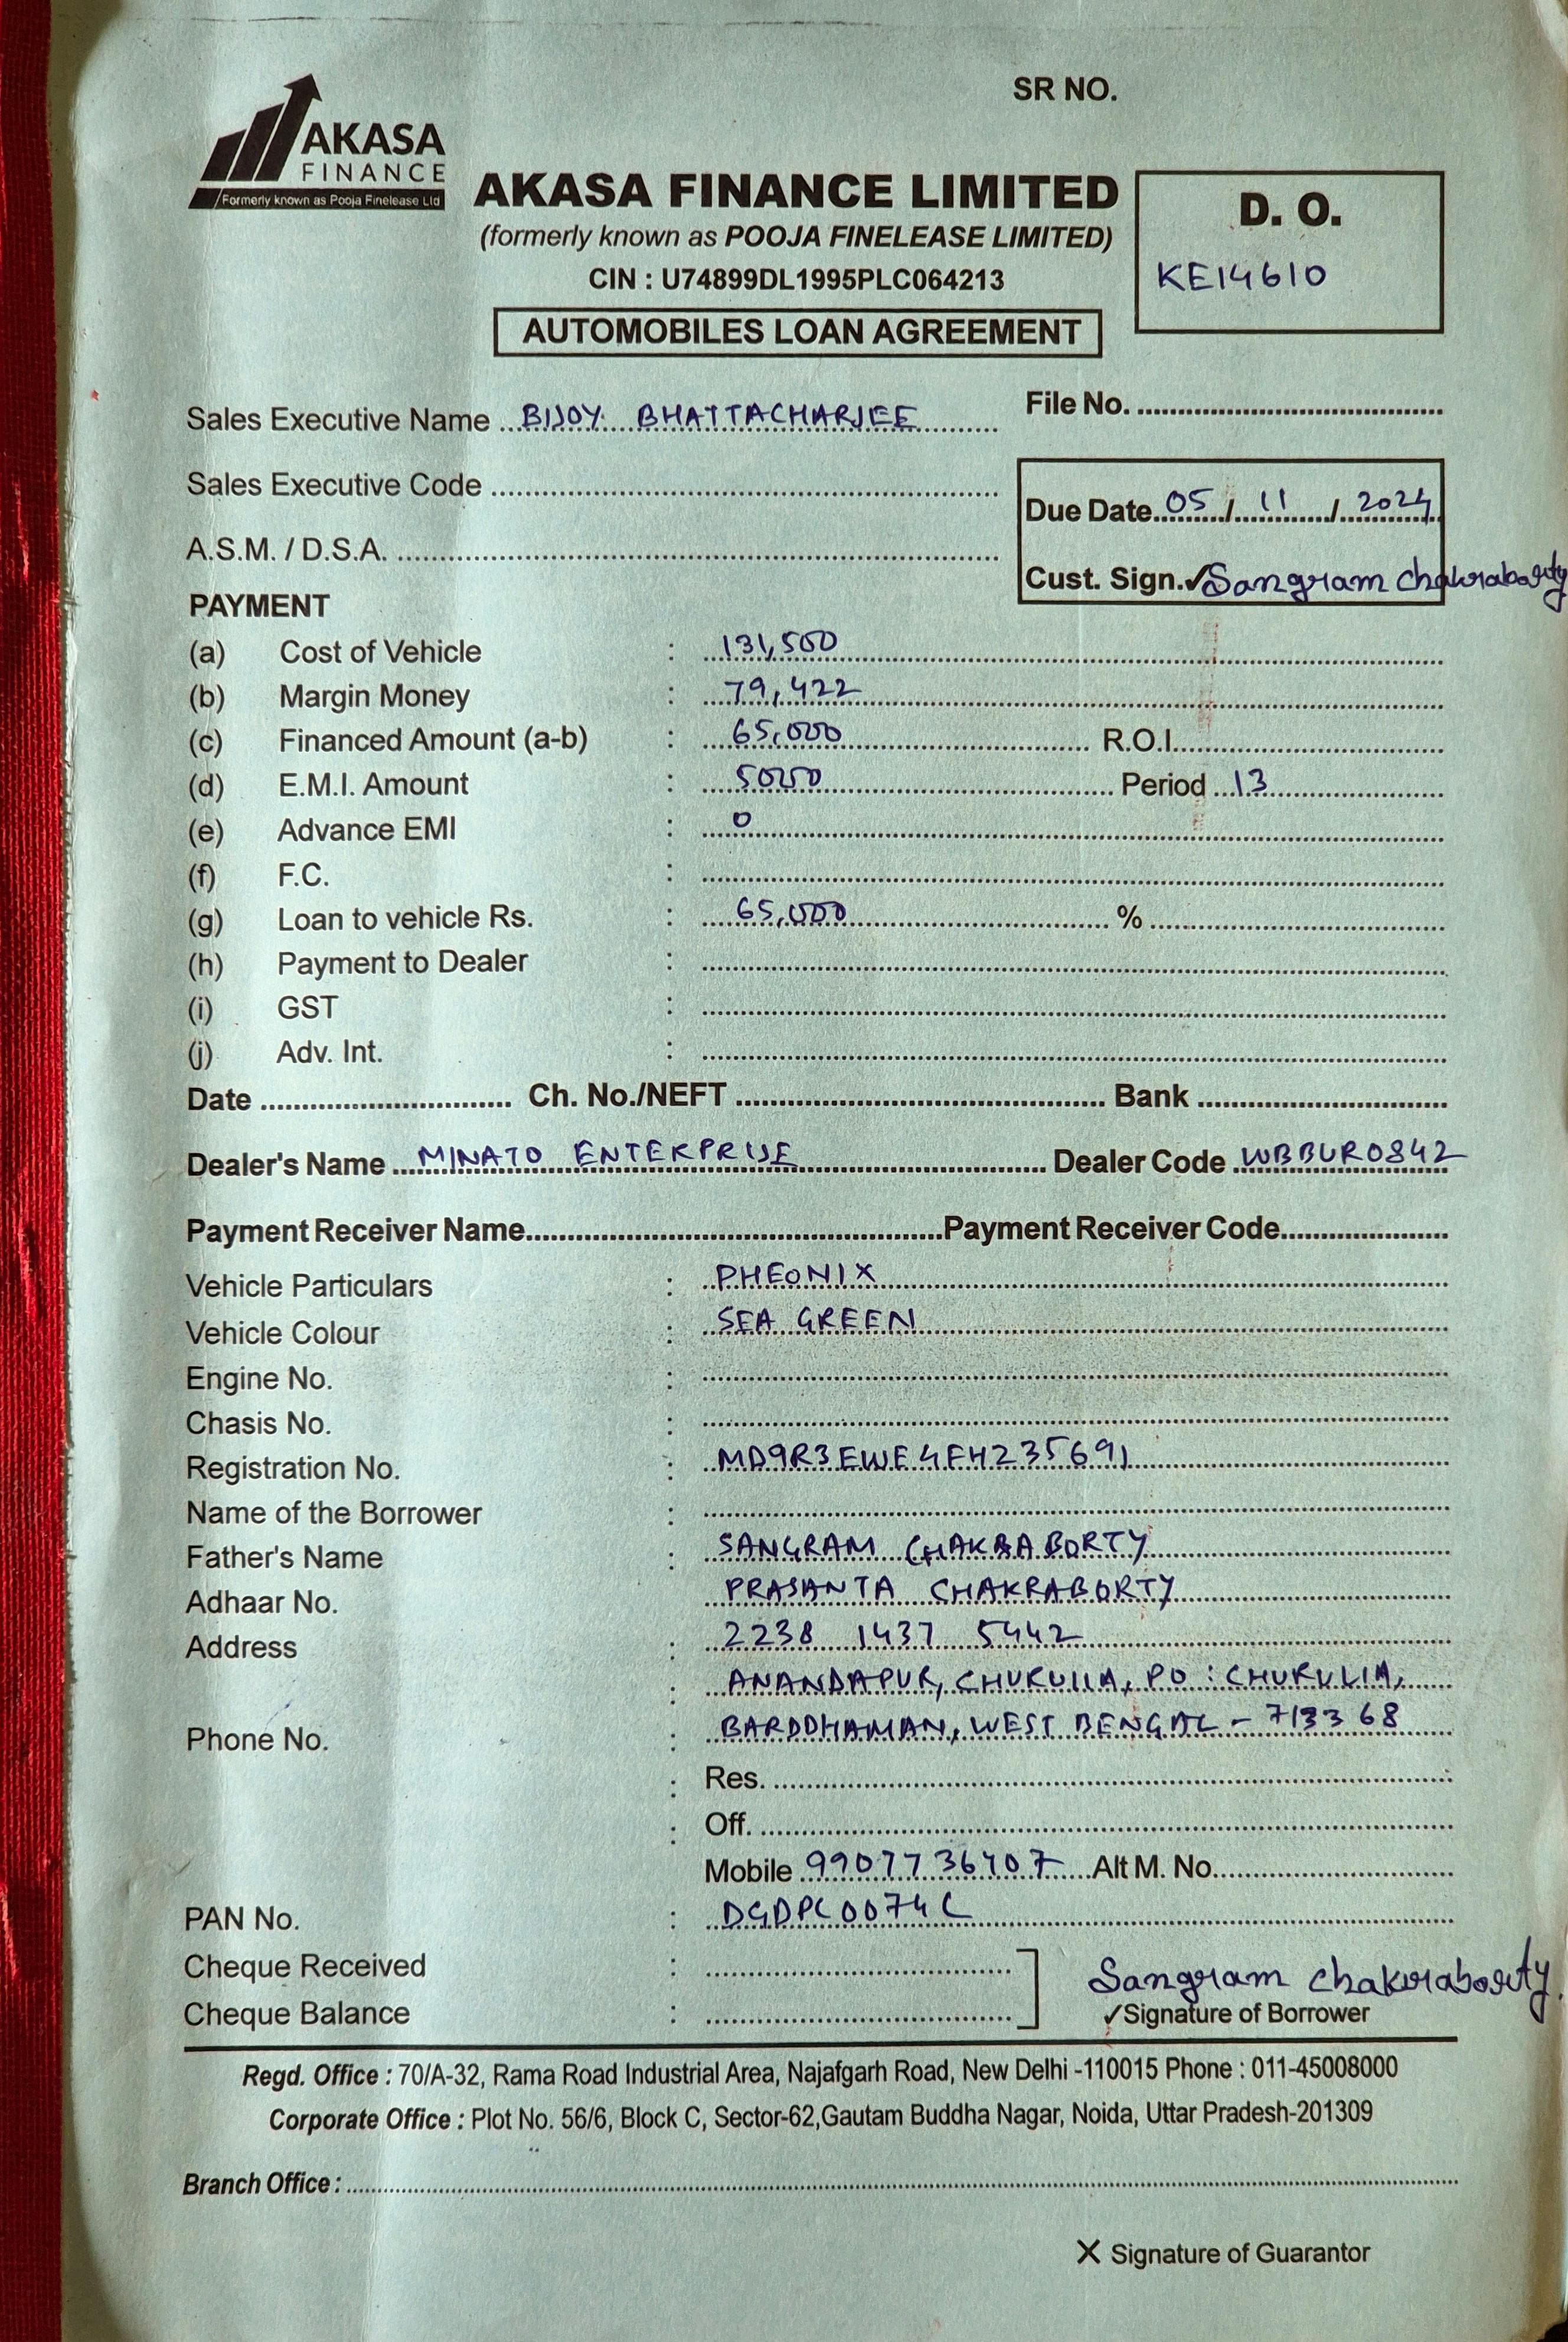 SR NO.
AKASA
FINANCE
Formerly known as Pooja Finelease Ltd
AKASA FINANCE LIMITED
(formerly known as POOJA FINELEASE LIMITED)
CIN : U74899DL1995PLC064213
AUTOMOBILES LOAN AGREEMENT
D. O.
KE14610
Sales Executive Name BIJOY BHATTACHARJEE
File No.
Sales Executive Code
Due Date 05 / 11 / 2024
A.S.M. / D.S.A.
Cust. Sign. ✓ Sangram Chakraborty
PAYMENT
(a) Cost of Vehicle : 131,500
(b) Margin Money : 79,422
(c) Financed Amount (a-b) : 65,000 R.O.I.
(d) E.M.I. Amount : 5000 Period 13
(e) Advance EMI : 0
(f) F.C. :
(g) Loan to vehicle Rs. : 65,000 %
(h) Payment to Dealer :
(i) GST :
(j) Adv. Int. :
Date Ch. No./NEFT Bank
Dealer's Name MINATO ENTERPRISE Dealer Code WBBUR0842
Payment Receiver Name Payment Receiver Code
Vehicle Particulars : PHEONIX
Vehicle Colour : SEA GREEN
Engine No. :
Chasis No. :
Registration No. : MD9R3EWE4FH235691
Name of the Borrower :
Father's Name : SANGRAM CHAKRABORTY
Adhaar No. PRASANTA CHAKRABORTY
Address : 2238 1437 5442
: ANANDAPUR, CHURULIA, PO : CHURULIA,
Phone No. : BARDDHAMAN, WEST BENGAL - 713368
: Res.
: Off.
Mobile 9907736407 Alt M. No.
PAN No. : DGDPC0074C
Cheque Received :
Sangram Chakraborty
Cheque Balance :
✓Signature of Borrower
Regd. Office : 70/A-32, Rama Road Industrial Area, Najafgarh Road, New Delhi -110015 Phone : 011-45008000
Corporate Office : Plot No. 56/6, Block C, Sector-62,Gautam Buddha Nagar, Noida, Uttar Pradesh-201309
Branch Office :
X Signature of Guarantor